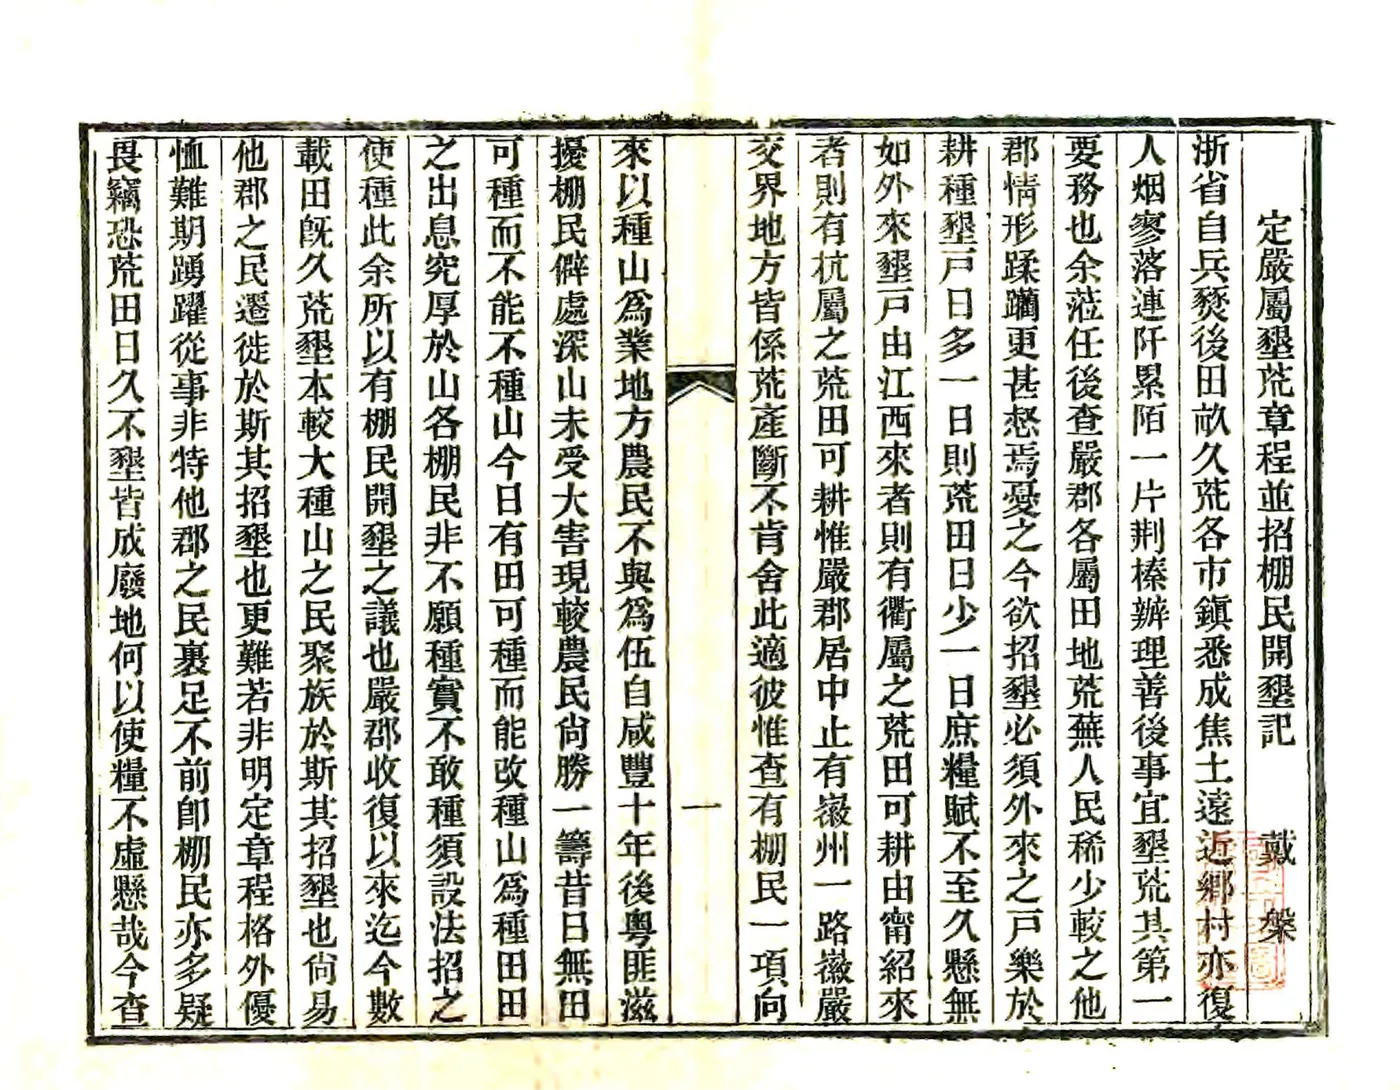 定嚴屬墾荒章程並招棚民開墾記 戴槃
浙省自兵燹後田畝久荒各市鎮悉成焦土遠近鄉村亦復
人烟寥落連阡累陌一片荆榛辦理善後事宜墾荒其第一
要務也余蒞任後查嚴郡各屬田地荒蕪人民稀少較之他
郡情形蹂躪更甚惄焉憂之今欲招墾必須外來之戸樂於
耕種墾戸日多一日則荒田日少一日庶糧賦不至久懸無
如外來墾戸由江西來者則有衢屬之荒田可耕由甯紹來
者則有杭屬之荒田可耕惟嚴郡居中止有嶶州一路嶶嚴
交界地方皆係荒產斷不肯舍此適彼惟查有棚民一項向
一
來以種山爲業地方農民不與爲伍自咸豐十年後粵匪滋
擾棚民僻處深山未受大害現較農民尙勝一籌昔日無田
可種而不能不種山今日有田可種而能改種山爲種田田
之出息究厚於山各棚民非不願種實不敢種須設法招之
使種此余所以有棚民開墾之議也嚴郡收復以來迄今數
載田旣久荒墾本較大種山之民聚族於斯其招墾也尙易
他郡之民遷徙於斯其招墾也更難若非明定章程格外優
恤難期踴躍從事非特他郡之民裹足不前卽棚民亦多疑
畏竊恐荒田日久不墾皆成廢地何以使糧不虛懸哉今查